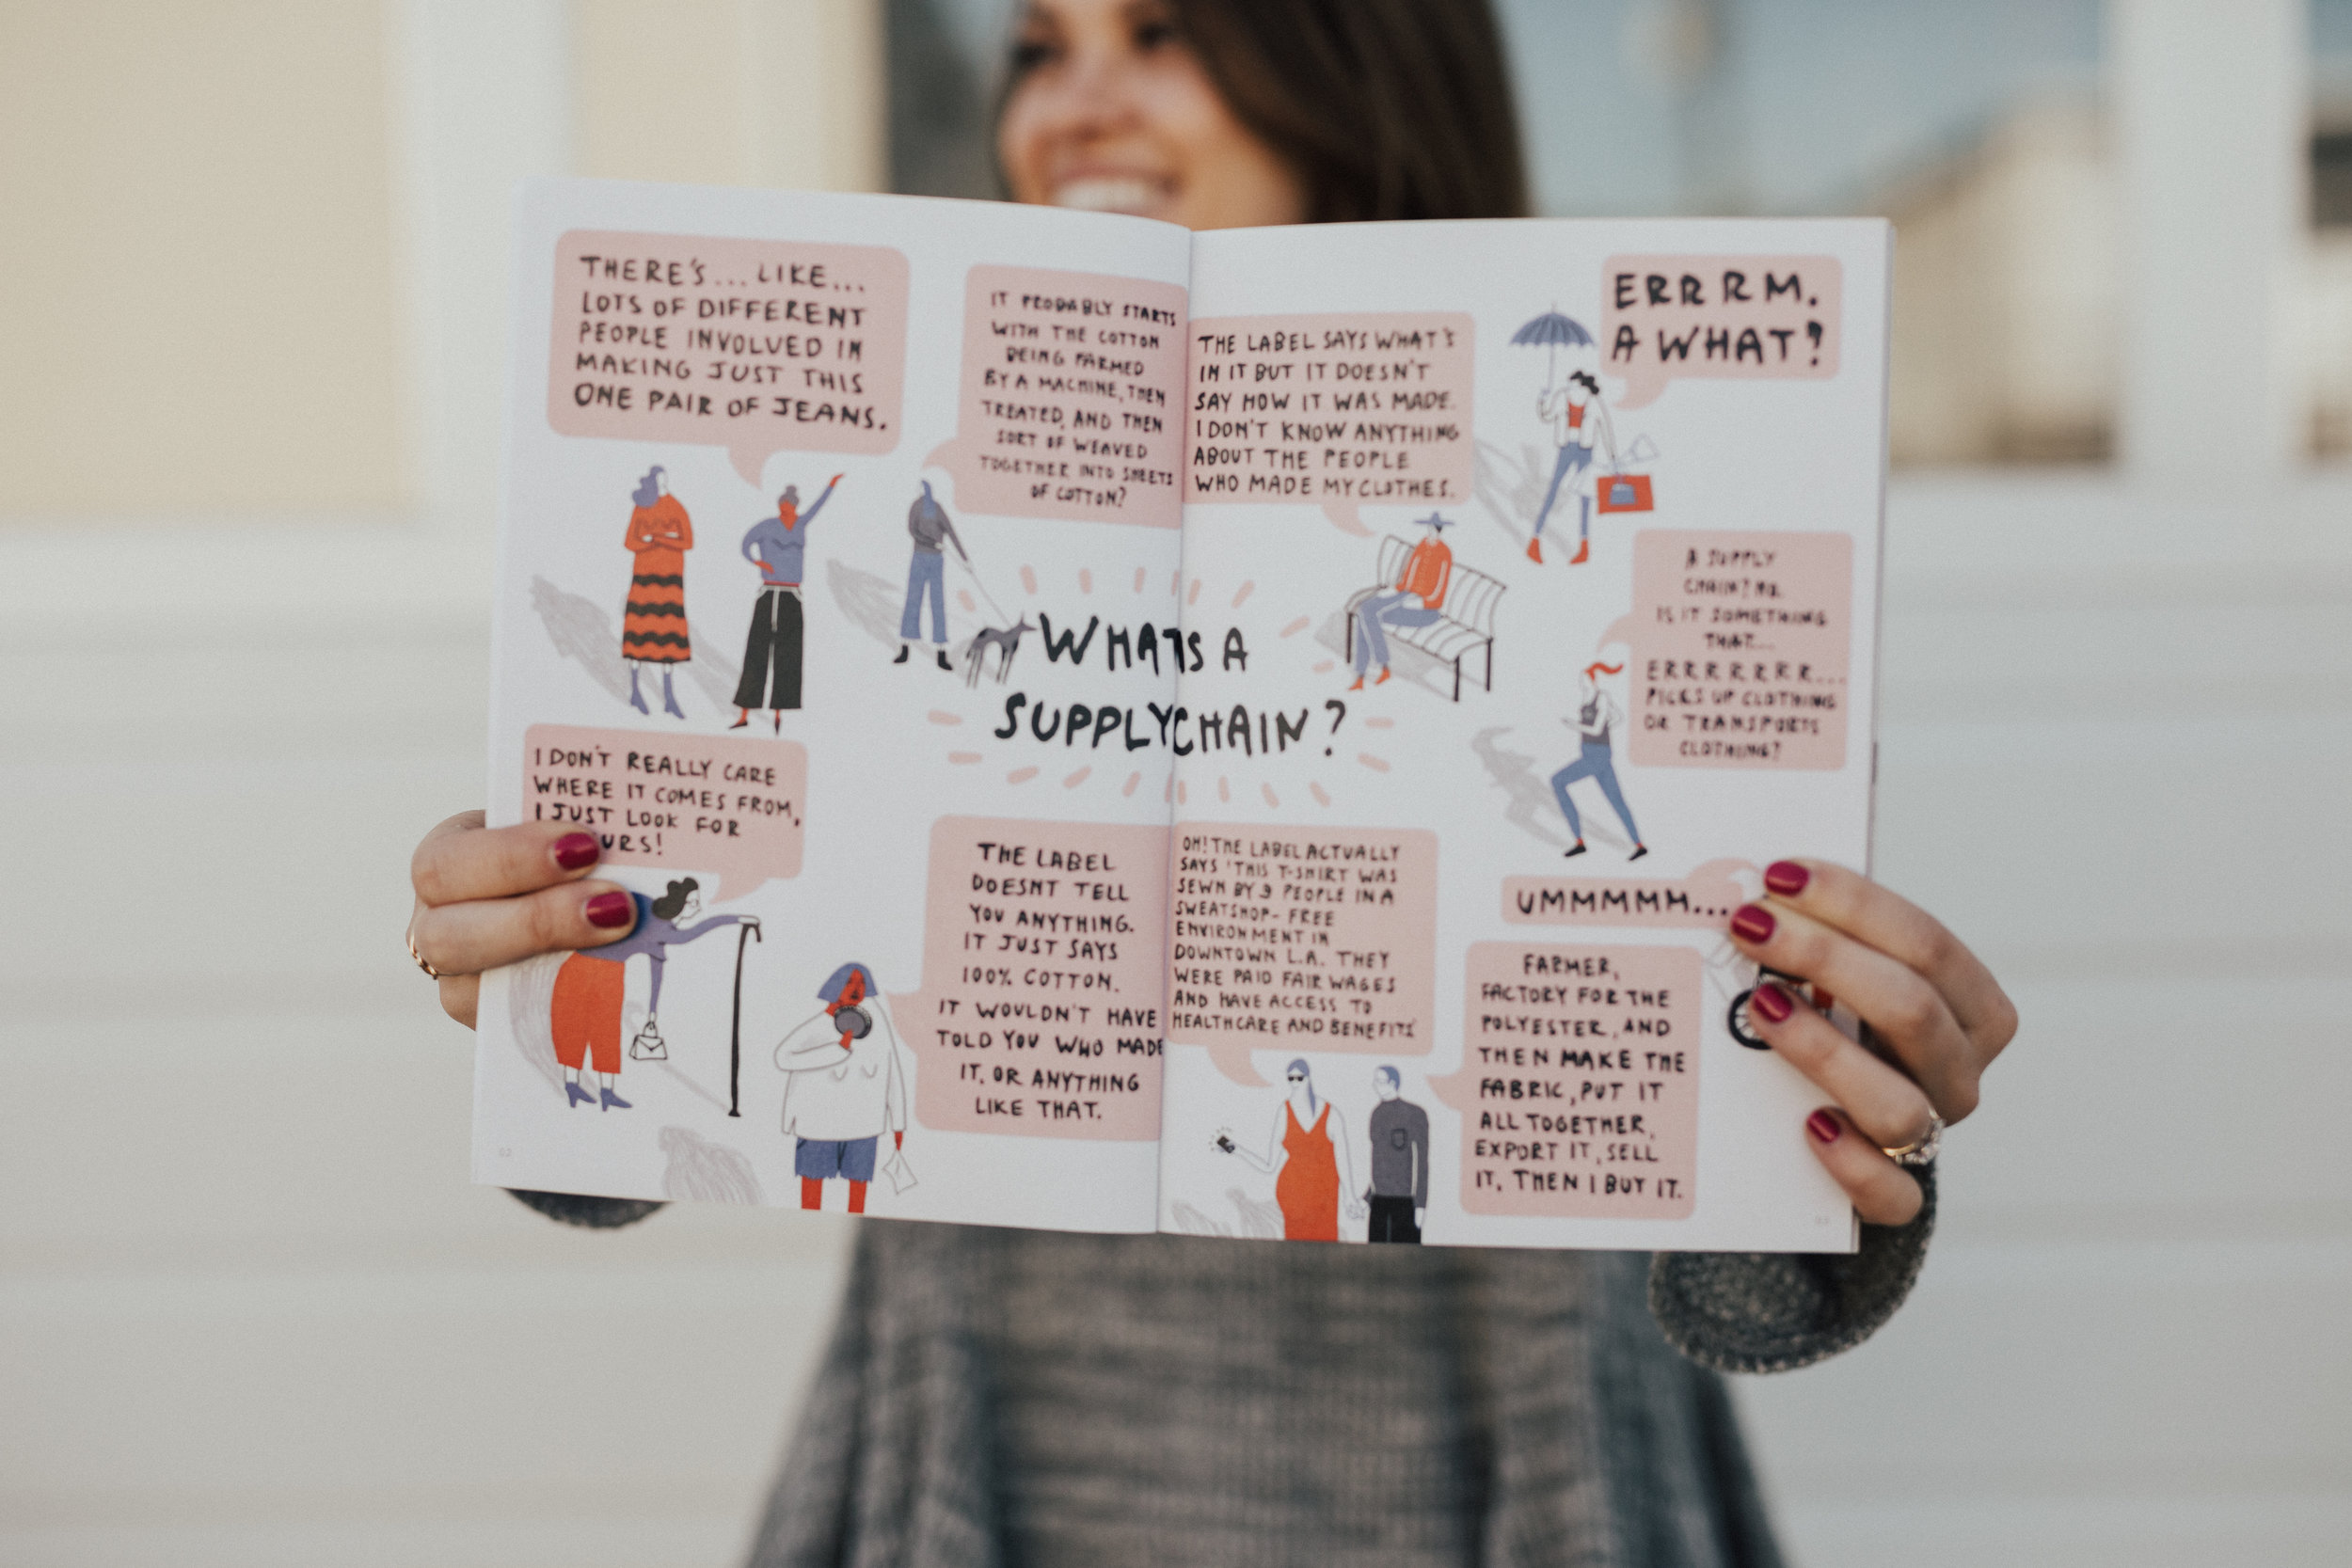 THERE'S... LIKE...
LOTS OF DIFFERENT
PEOPLE INVOLVED IN
MAKING JUST THIS
ONE PAIR OF JEANS.
IT PROBABLY STARTS
WITH THE COTTON
BEING FARMED
BY A MACHINE, THEN
TREATED, AND THEN
SORT OF WEAVED
TOGETHER INTO SHEETS
OF COTTON?
THE LABEL SAYS WHAT'S
IN IT BUT IT DOESN'T
SAY HOW IT WAS MADE.
I DON'T KNOW ANYTHING
ABOUT THE PEOPLE
WHO MADE MY CLOTHES.
ERRRM.
A WHAT?
A SUPPLY
CHAIN? NO.
IS IT SOMETHING
THAT...
ERRRRRRR...
PICKS UP CLOTHING
OR TRANSPORTS
CLOTHING?
WHATS A
SUPPLYCHAIN?
I DON'T REALLY CARE
WHERE IT COMES FROM,
I JUST LOOK FOR
URS!
THE LABEL
DOESNT TELL
YOU ANYTHING.
IT JUST SAYS
100% COTTON.
IT WOULDN'T HAVE
TOLD YOU WHO MADE
IT, OR ANYTHING
LIKE THAT.
OH! THE LABEL ACTUALLY
SAYS 'THIS T-SHIRT WAS
SEWN BY 9 PEOPLE IN A
SWEATSHOP-FREE
ENVIRONMENT IN
DOWNTOWN L.A. THEY
WERE PAID FAIR WAGES
AND HAVE ACCESS TO
HEALTHCARE AND BENEFITS'
UMMMMM...
FARMER,
FACTORY FOR THE
POLYESTER, AND
THEN MAKE THE
FABRIC, PUT IT
ALL TOGETHER,
EXPORT IT, SELL
IT, THEN I BUY IT.